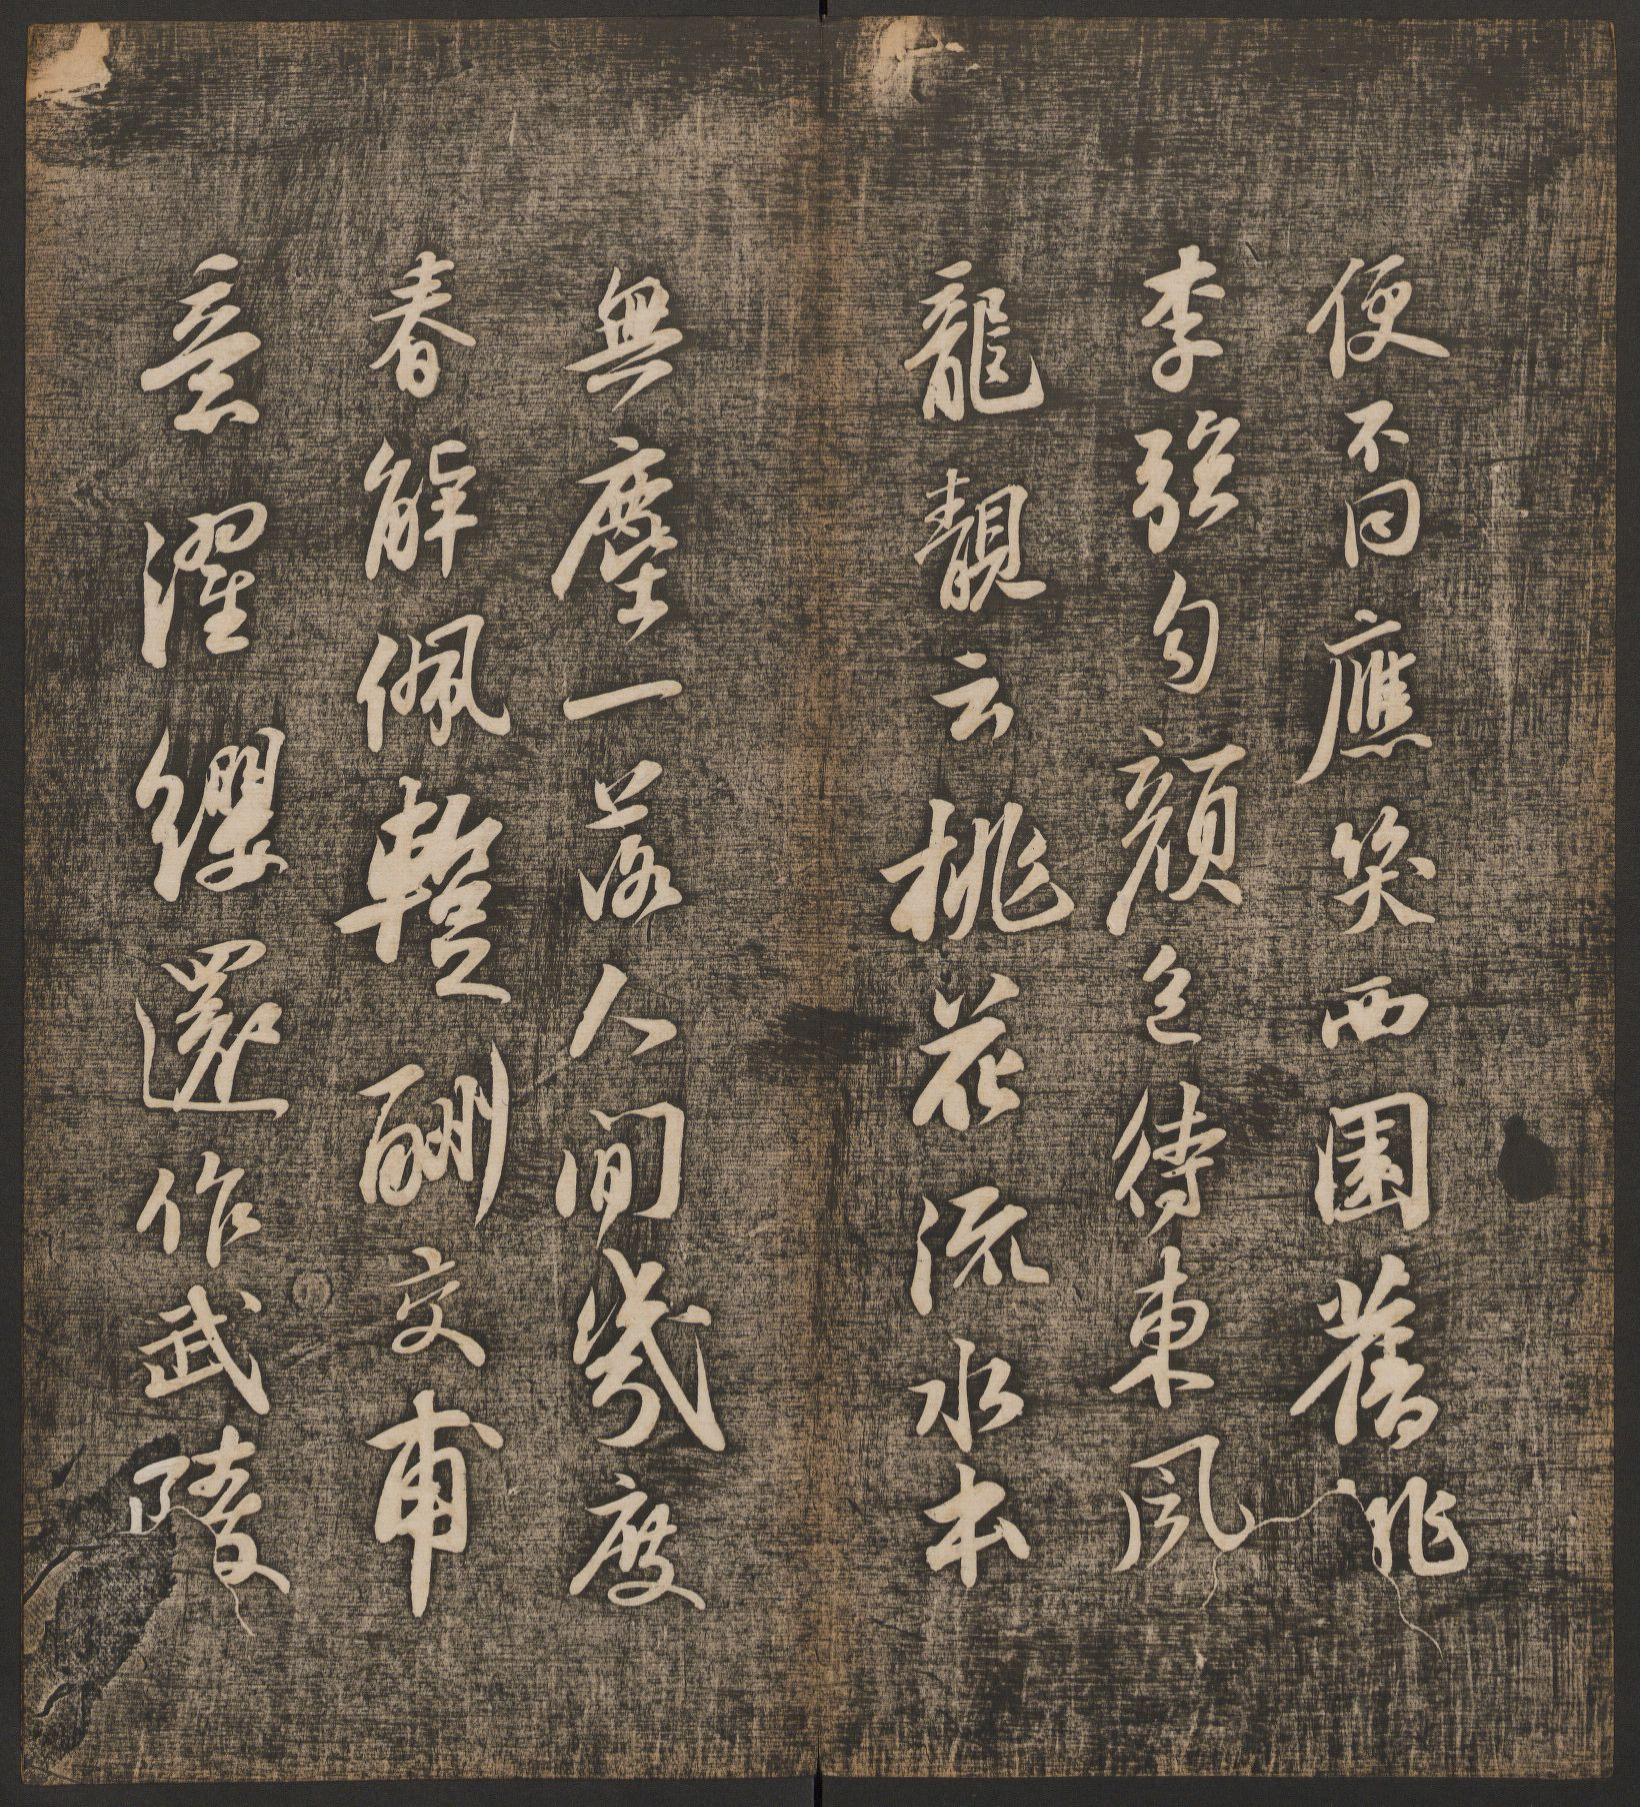 便不同應笑西園舊桃
李強勻顏色待東風
龍靚云桃花流水本
無塵一落人間幾度
春解佩暫酬交甫
意濯纓還作武陵